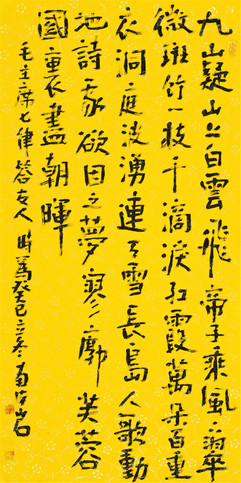 九嶷山上白雲飛帝子乘風下翠
微斑竹一枝千滴淚紅霞萬朵百重
衣洞庭波湧連天雪長島人歌動
地詩我欲因之夢寥廓芙蓉
國裏盡朝暉
毛主席七律答友人 時爲癸巳